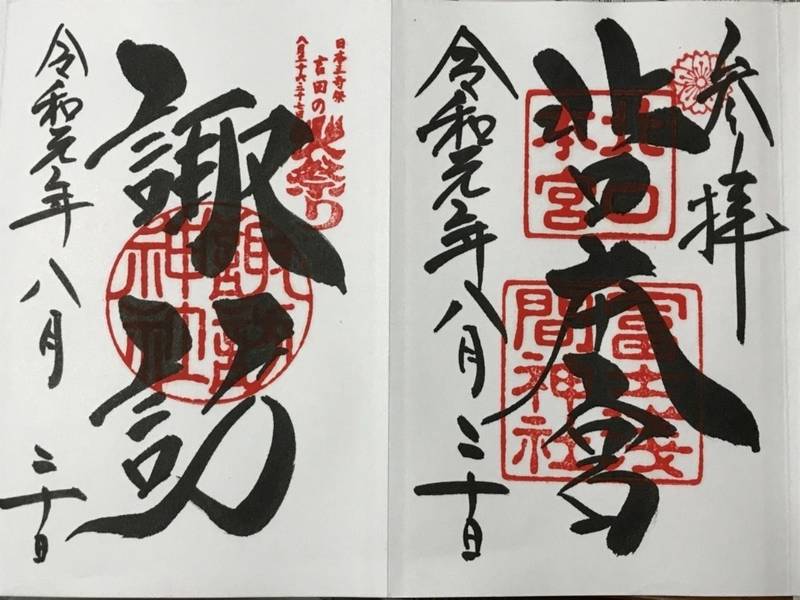 参拝
北口本宮
北口
本宮
冨士浅
間神社
令和元年八月二十日
日本三奇祭
吉田の火祭り
八月二十六・二十七日
諏訪
諏訪
神社
令和元年八月二十日